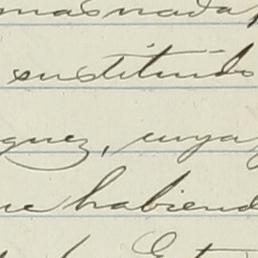 mas nada,
sustituido
guez, cuya
ue habiend